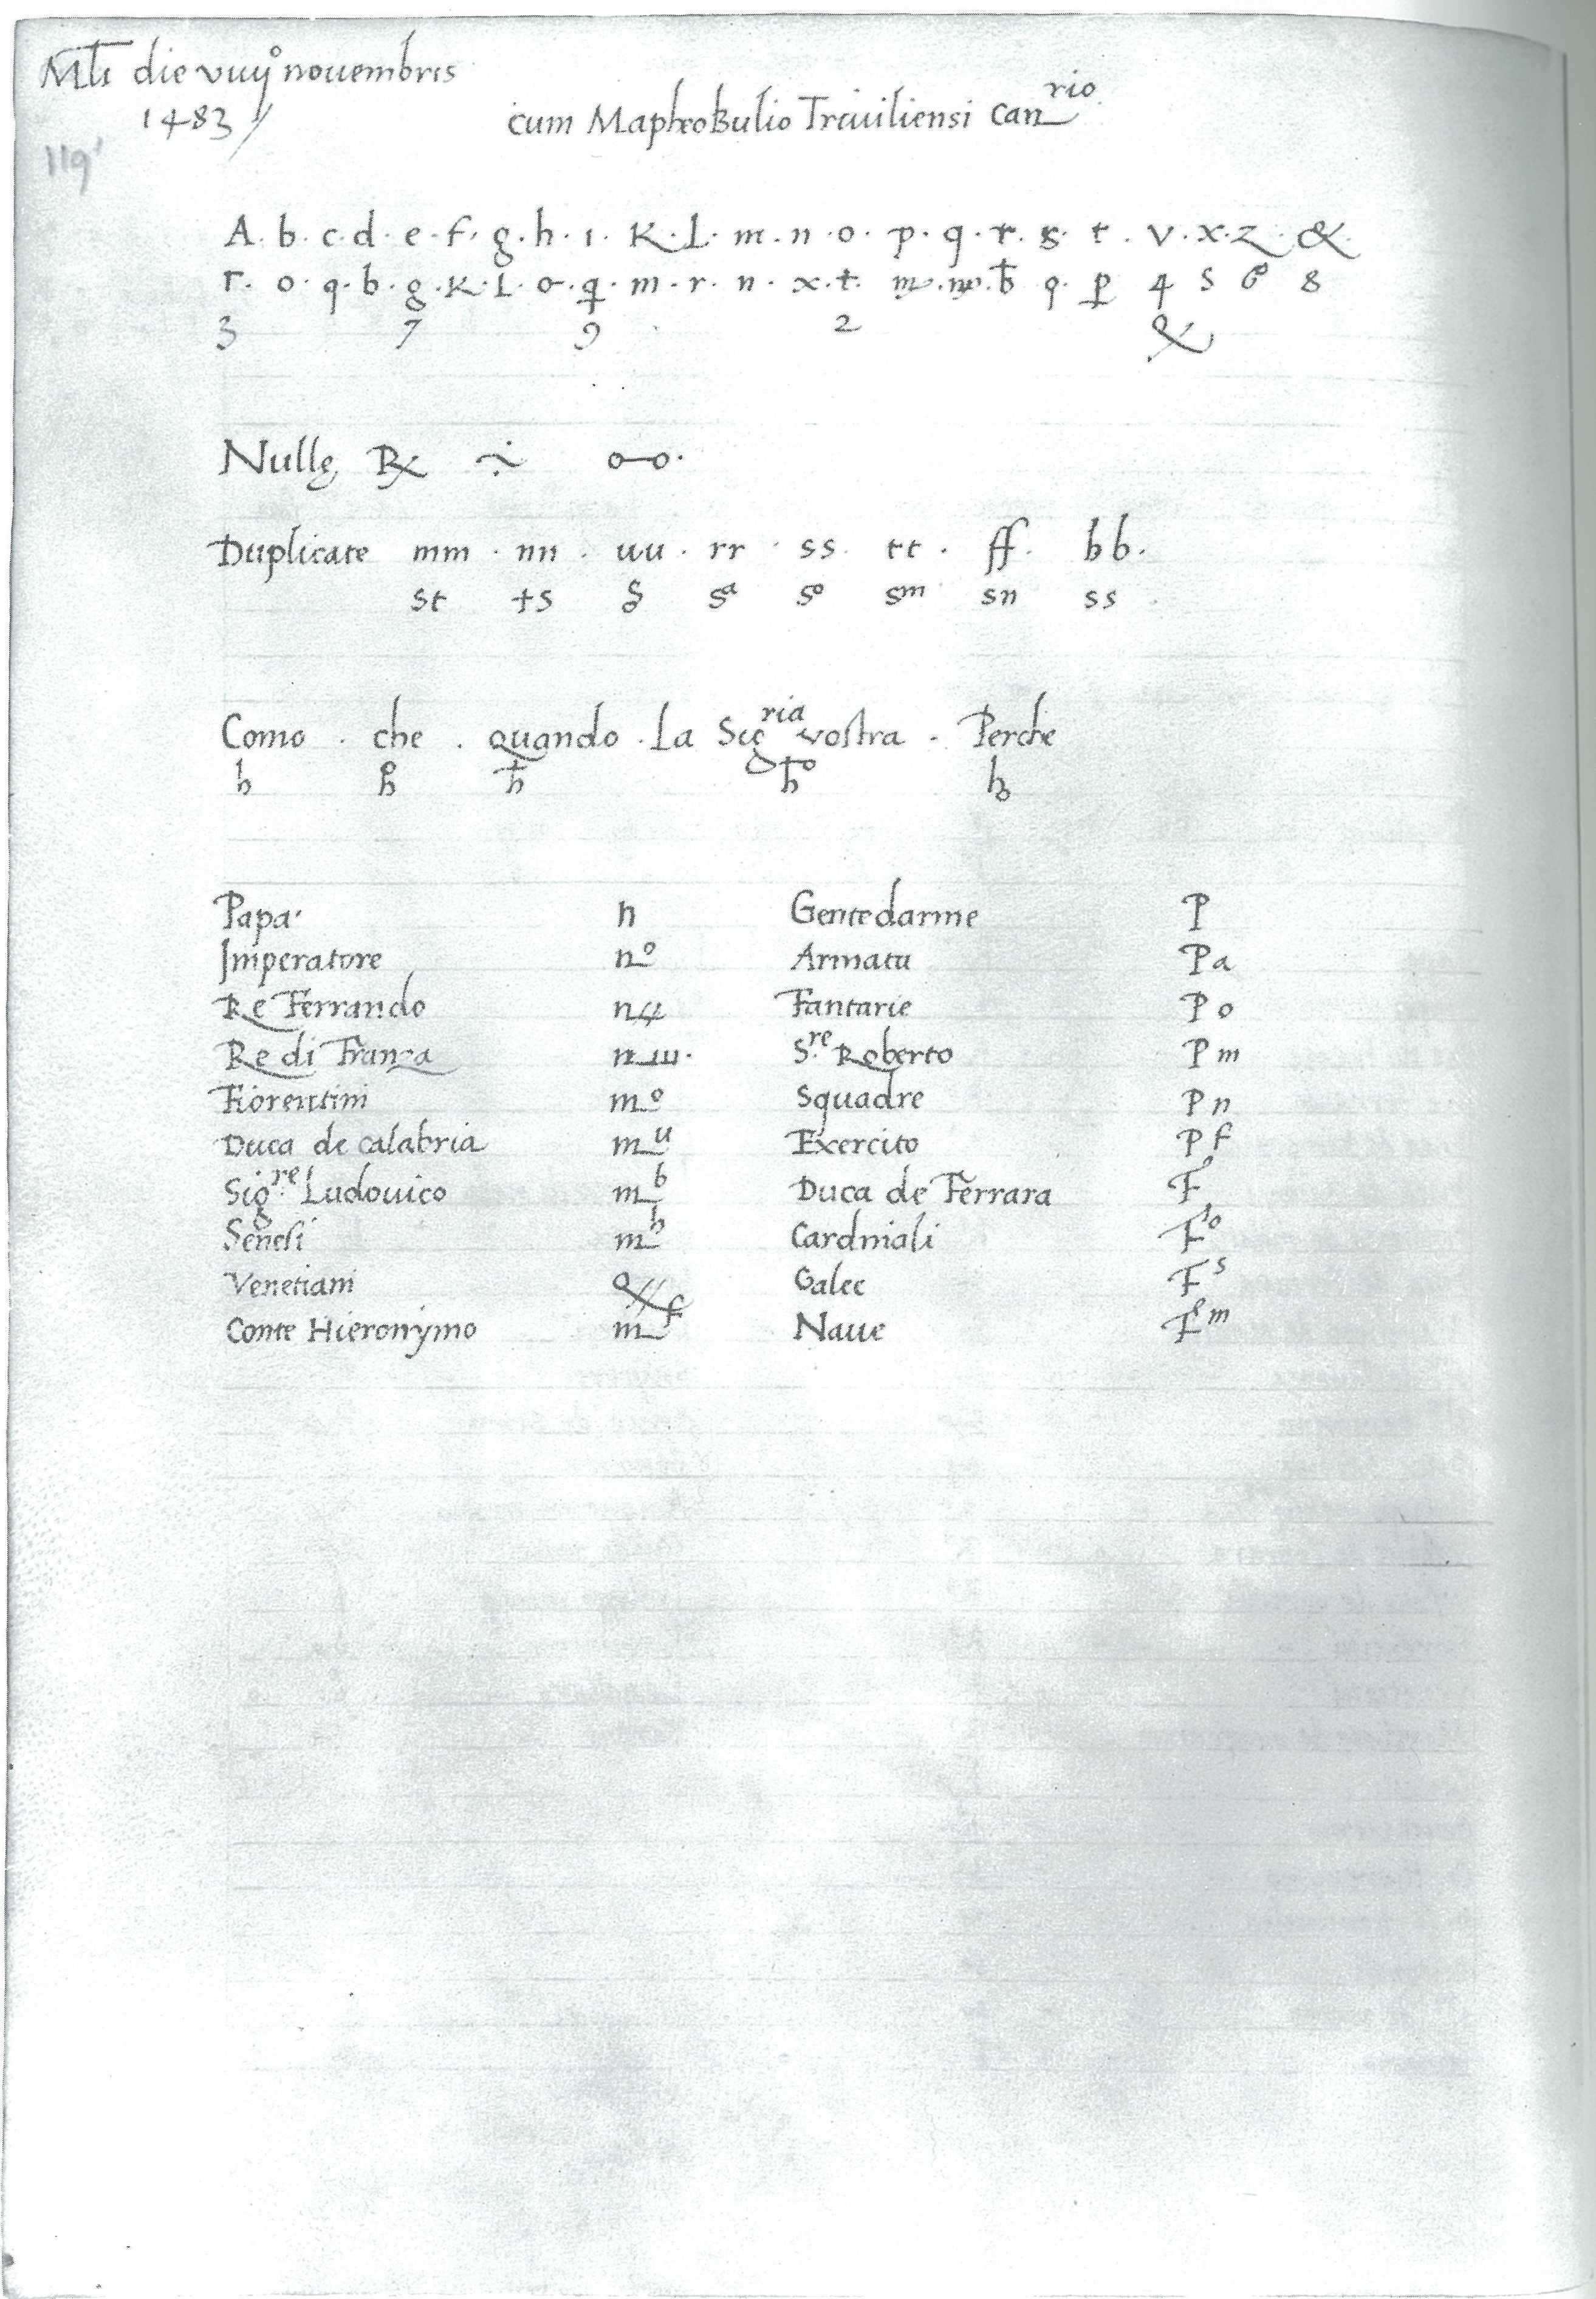 Mlı die vuıȷ° nouembris
1483
cum Mapheo Bulio Triuiliensi Can rio
119'
A. b. c. d. e. f. g. h. ı. K. L. m. n. o. p. q. r. s. t. v. x. z. &.
r. o. q. b. g. K. L. o. q. m. r. n. x. t. b q. p 4 s 6 8
3 7 9 2 &
Nulle
Duplicate mm. nn. uu. rr. ss. tt. ff. bb.
st ts sª s° sᵐ sn ss
Como. che. quando. La Sigria vostra. Perche
h h h h° h
Papa. n Gentedarme P
Imperatore n° Armata Pa
Re Ferrando n4 Fantarie Po
Re di Franza nııı. S.re Roberto Pm
Fiorentini m° Squadre Pn
Duca de calabria mᵘ Exercito Pf
Sig.re Ludouico mᵇ Duca de Ferrara F
Senesi mʰ Cardinali F°
Venetiani Galee Fˢ
Conte Hieronymo mᶠ Naue Fᵐ